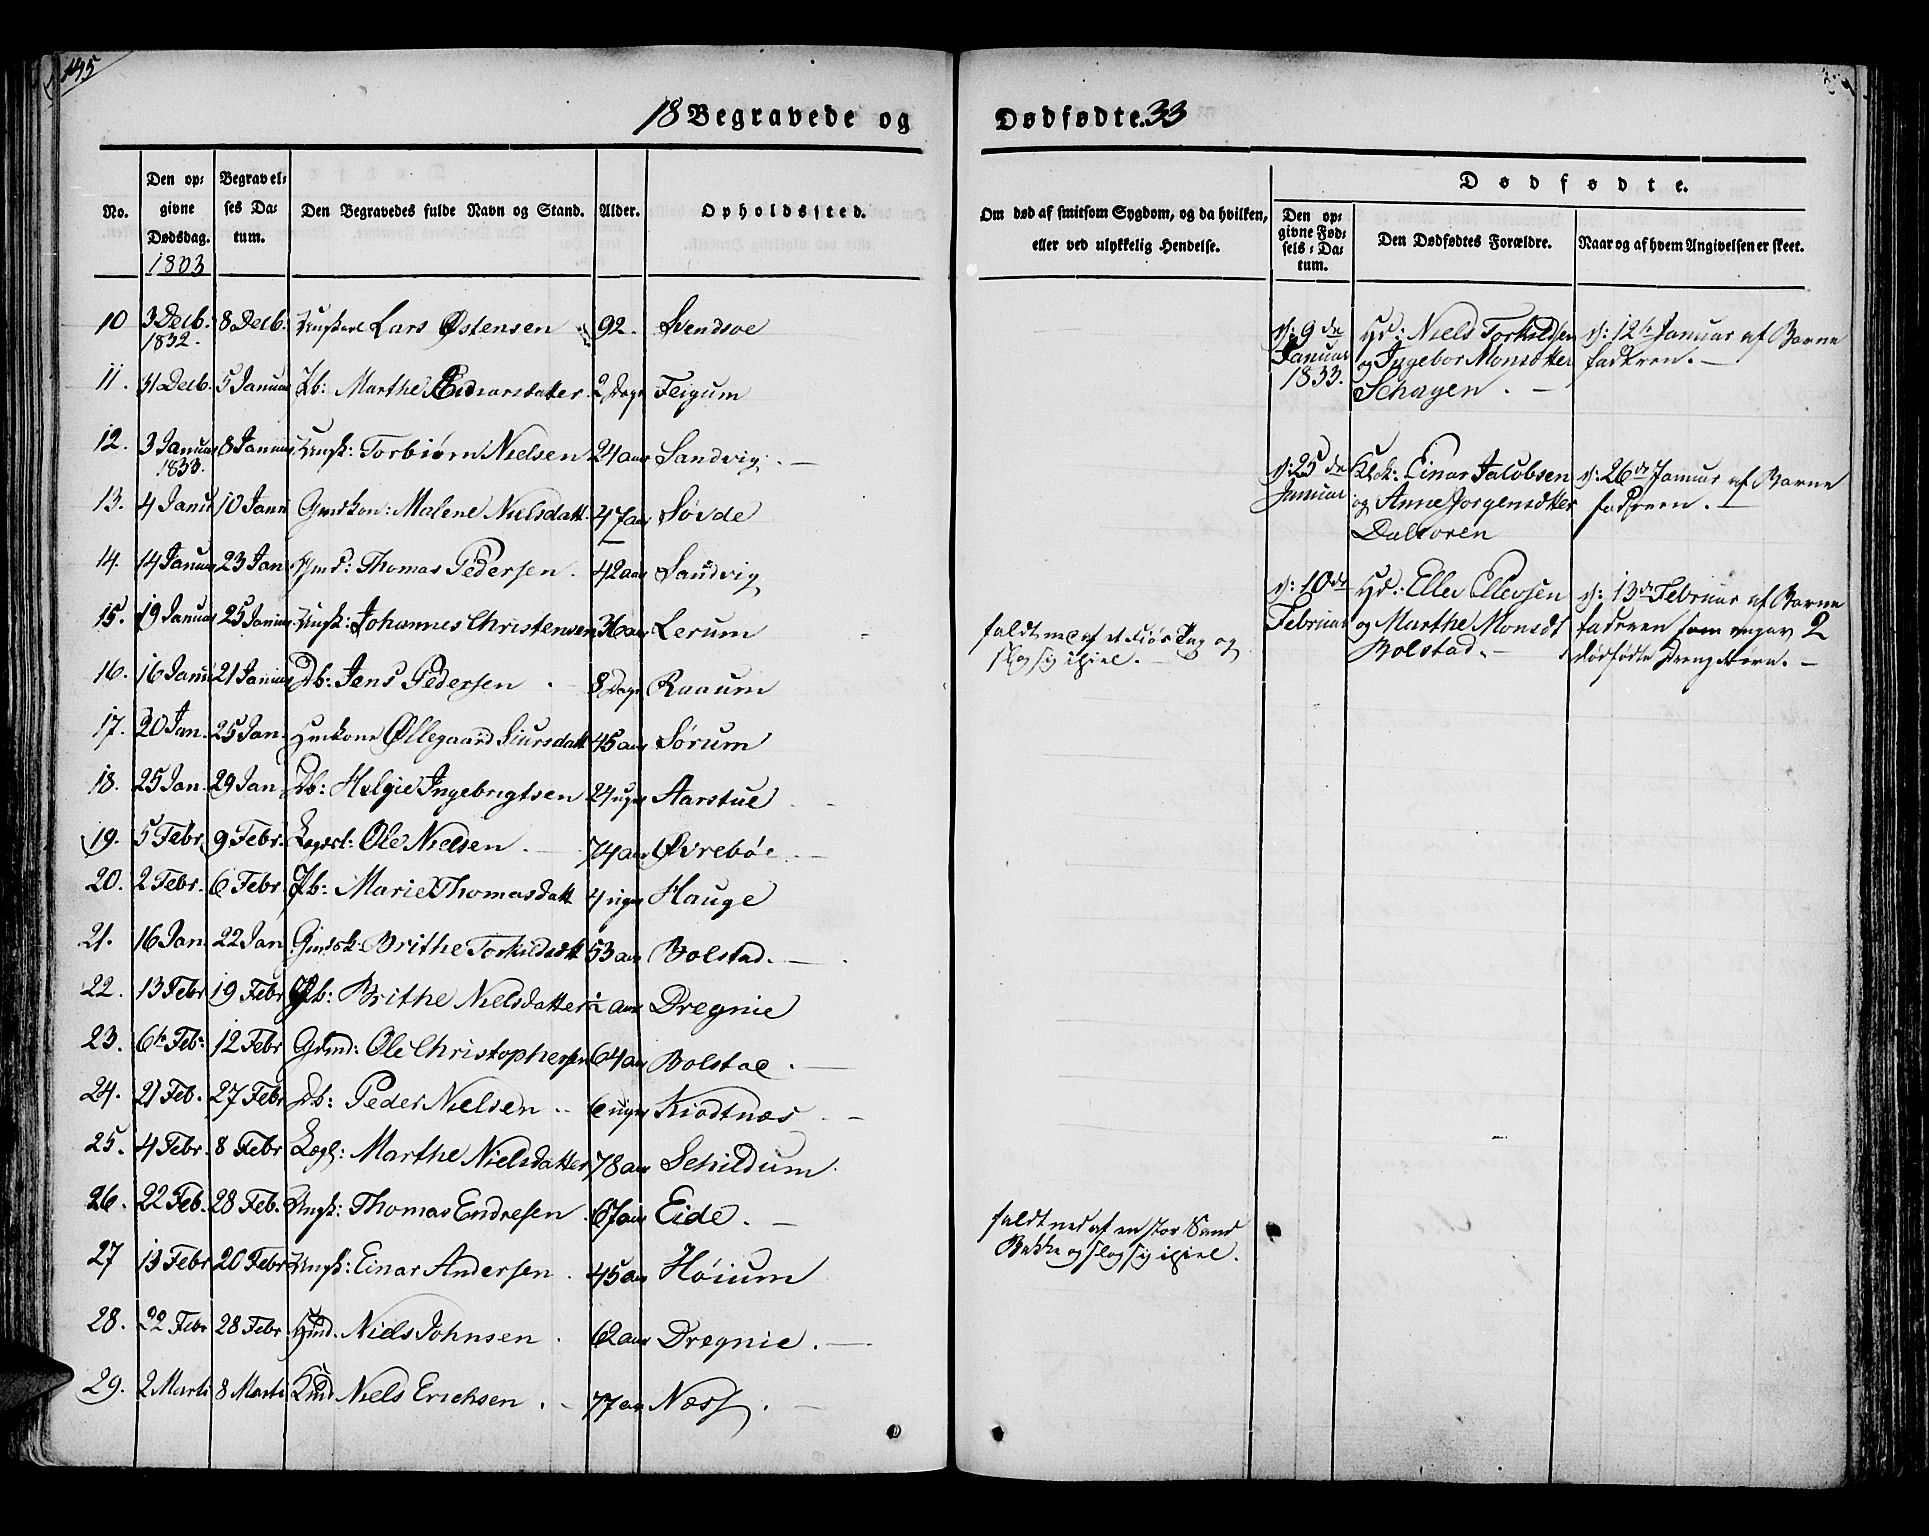 145
18 Begravede og Dødfødte. 33
No.
Den op-
givne
Dødsdag.
Begravel-
ses Da-
tum.
Den Begravedes fulde Navn og Stand.
Alder.
Opholdssted.
Om død af smitsom Sygdom, og da hvilken,
eller ved ulykkelig Hendelse.
Dødfødte.
Den op-
givne Fød-
sels-Da-
tum.
Den Dødfødtes Forældre.
Naar og af hvem Angivelsen er skeet.
1833
10 3 Decb. 1832. 8 Decb. Lars Østensen 92. Svendsøe
11. 31 Decb. 5 Januar Pb: Marthe Einarsdatter 2 Dage Feigum
12. 3 Januar 1833. 8 Januar Ungk: Torbiørn Nielsen 24 aar Sandvig.
13. 4 Janu 10 Janu Gmdkon: Malene Nielsdatt. 47 aar Søvde
14. 14 Januar 23 Jan Thomas Pedersen. 42 aar Sandvig
15. 19 Januar 25 Januar Ungk: Johannes Christensen 36 aar Lerum faldt ned af et Fiøs Tag og
slog sig ihiel.
16. 16 Janu 21 Januar Db: Jens Pedersen 8 Dage Raaum
17. 20 Jan. 25 Jan. Huskone Øllegaard Siursdatt 45 aar Sørum
18. 25 Jan. 29 Jan Db: Helgie Ingebrigtsen 24 uger Aarstue
19. 5 Febr. 9 Febr. Lægdsl: Ole Nielsen. 74 aar Øvrebøe
20. 2 Febr. 6 Febr. Pb: Marie Thomasdatt 4 uger Hauge
21. 16 Jan. 22 Jan Gmdsk: Brithe Torkildsdtt 53 aar Bolstad.
22. 13 Febr 19 Febr Pb: Brithe Nielsdatter ½ aar Dregnie
23. 6te Feb. 12 Febr Gmd: Ole Christophersen 64 aar Bolstad.
24. 21 Feb. 27 Febr Db: Peder Nielsen 6 uger Kiodtnæs
25. 4 Febr. 8 Febr Lægl: Marthe Nielsdatter 78 aar Schildum
26. 22 Feb. 28 Feb. Ungk: Thomas Endresen 67 aar Eide. faldt ned af en stor Sand
Bakke og slog sig ihiel.
27 13 Febr 20 Febr Ungk: Einar Andersen. 45 aar Høium
28. 22 Febr 28 Febr. Hmd. Niels Johnsen. 62 aar Dregnie.
29. 2 Marti 8 Marti Niels Erichsen. 77 aar Næss.
d: 9de
Januar
1833.
Hd: Niels Torkildsen
og Ingebor Monsdtter
Schagen.
d: 12te Januar af Barne
fadren.
d: 25de
Januar
Einar Jacobsen
og Anne Jorgensdtter
Dalsoren
d: 26de Januar af Barne
fadren.
d: 10de
Februar
Hd: Ellev Ellevsen
og Marthe Monsdt
Bolstad.
d: 13de Februar af Barne
faderen som angav 2
dødfødte Drengebørn.